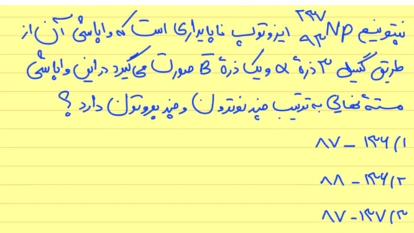 نپتونیم ²³⁷₉₃Np ایزوتوپ ناپایداری است که واپاشی آن از
طریق گسیل ۳ ذرهٔ α و یک ذرهٔ β⁻ صورت می‌گیرد در این واپاشی
هستهٔ نهایی به ترتیب چند نوترون و چند پروتون دارد ؟
۱/ ۱۳۶ – ۸۷
۲/ ۱۳۶ – ۸۸
۳/ ۱۳۷ – ۸۷